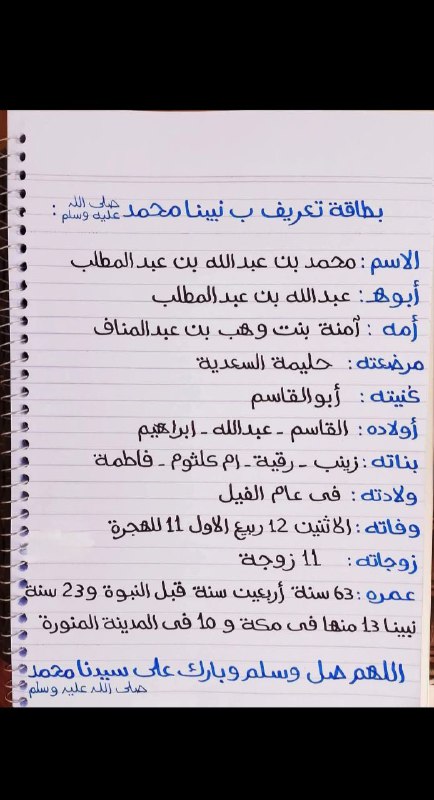 بطاقة تعريف ب نبينا محمد صلى الله عليه وسلم :
الاسم : محمد بن عبدالله بن عبدالمطلب
أبوه : عبدالله بن عبدالمطلب
أمه : آمنة بنت وهب بن عبدالمناف
مرضعته : حليمة السعدية
كنيته : أبوالقاسم
أولاده : القاسم - عبدالله - ابراهيم
بناته : زينب - رقية - ام كلثوم - فاطمة
ولادته : فى عام الفيل
وفاته : الاثنين 12 ربيع الاول 11 للهجرة
زوجاته : 11 زوجة
عمره : 63 سنة أربعين سنة قبل النبوة و 23 سنة
نبينا 13 منها فى مكة و 10 فى المدينة المنورة
اللهم صل وسلم وبارك على سيدنا محمد
صلى الله عليه وسلم